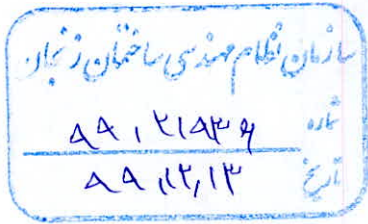 سازمان نظام مهندسی ساختمان زنجان
شماره ۹۹,۲۱۹۳۶
تاریخ ۹۹,۱۲,۱۳